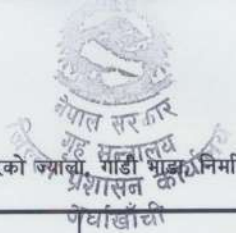 नेपाल सरकार
गृह मन्त्रालय
को ज्याला, गाडी भाडा, निर्मा
प्रशासन कार्यालय
अर्घाखाँची